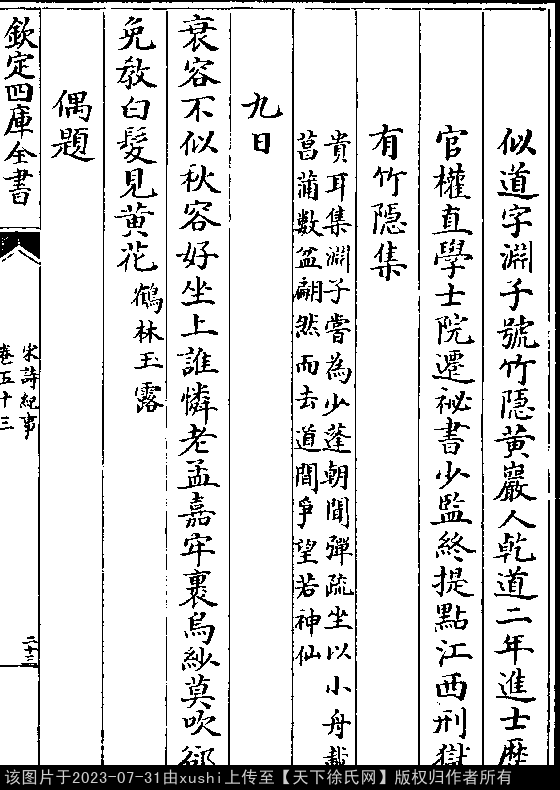 似道字淵子號竹隱黄巖人乾道二年進士歴
官權直學士院遷祕書少監終提點江西刑獄
有竹隠集
貴耳集淵子嘗為少蓬朝聞彈疏坐以小舟載
菖蒲數盆翩然而去道間爭望若神仙
九日
衰容不似秋容好坐上誰憐老孟嘉牢裹烏紗莫吹
免教白髪見黄花 鶴林玉露
偶題
欽定四庫全書
宋詩紀事
卷五十三
二十三
该图片于2023-07-31由xushi上传至【天下徐氏网】版权归作者所有